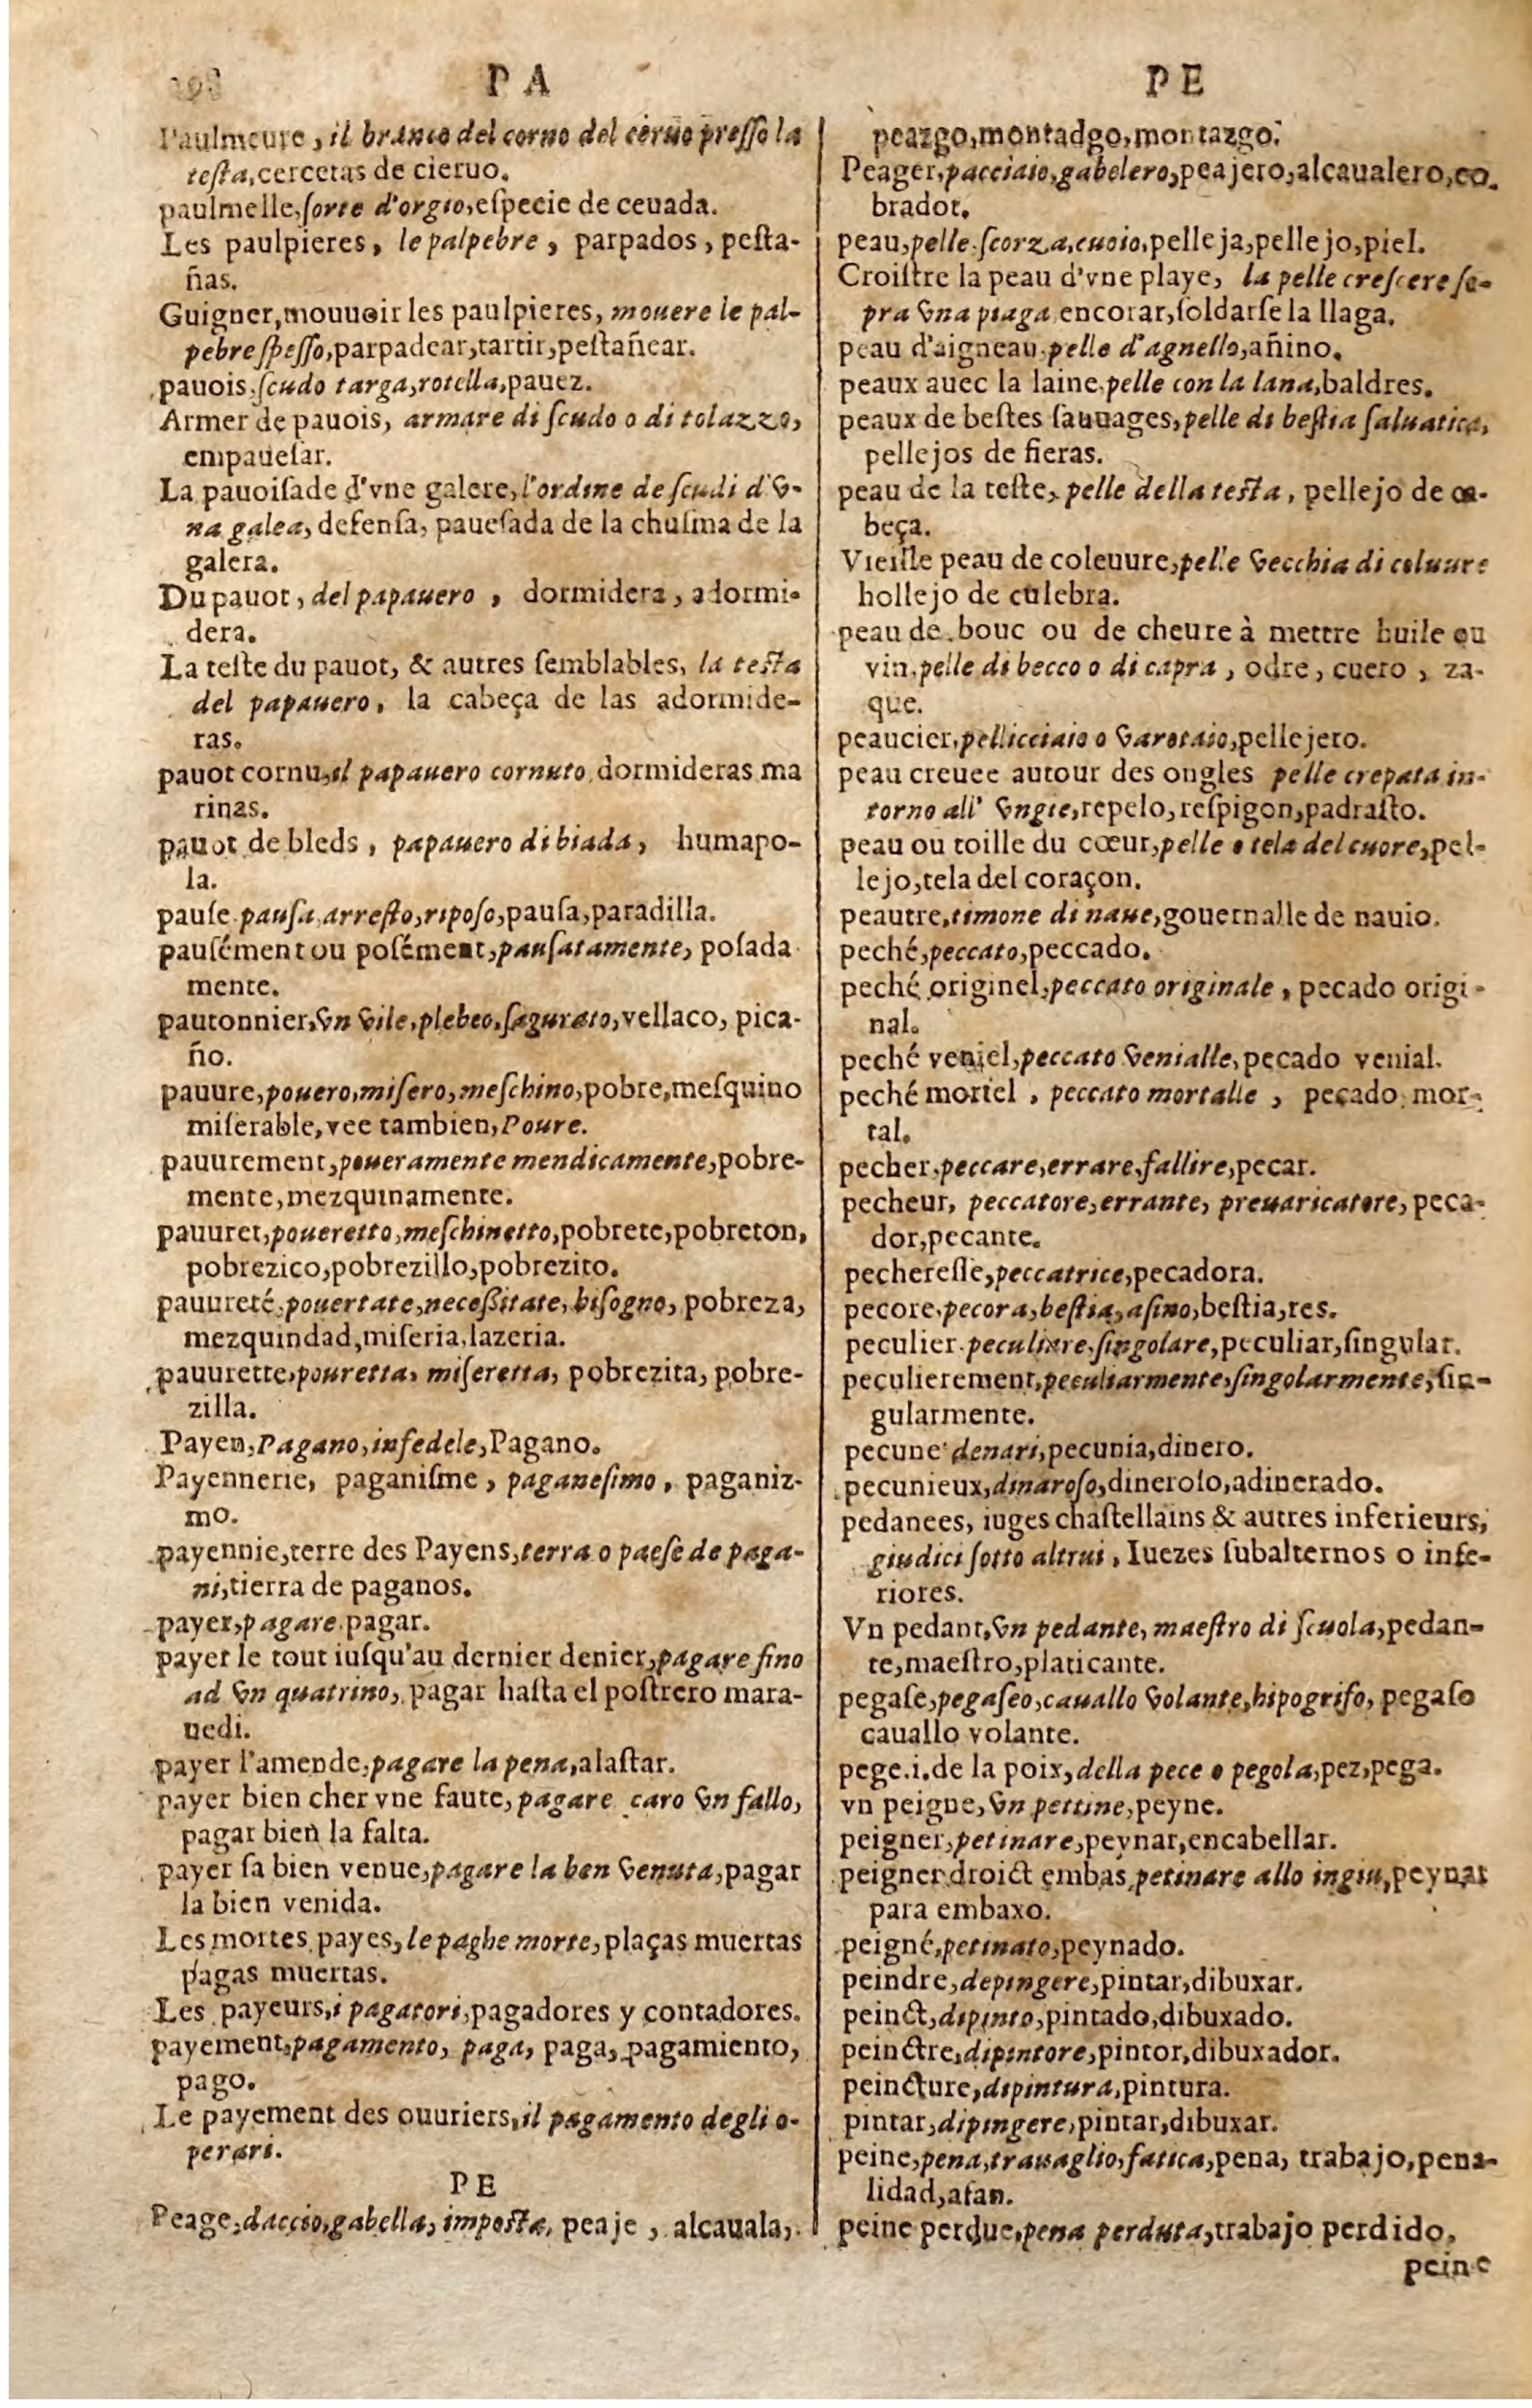 PA
Paulmeure, il branco del corno del ceruo presso la
testa, cercetas de cieruo.
paulmelle, ſorte d'orgio, eſpecie de ceuada.
Les paulpieres, le palpebre, parpados, peſta-
ñas.
Guigner, mouuoir les paulpieres, mouere le pal-
pebre ſpeſſo, parpadear, tartir, peſtañear.
pauois, ſcudo targa, rotella, pauez.
Armer de pauois, armare di ſcudo o di tolazzo,
empaueſar.
La pauoiſade d'vne galere, l'ordine de ſcudi d'v-
na galea, defenſa, paueſada de la chuſma de la
galera.
Du pauot, del papauero, dormidera, adormi-
dera.
La teſte du pauot, & autres ſemblables, la teſta
del papauero, la cabeça de las adormide-
ras.
pauot cornu, il papauero cornuto dormideras ma
rinas.
pauot de bleds, papauero di biada, humapo-
la.
pauſe pauſa, arreſto, ripoſo, pauſa, paradilla.
pauſément ou poſément, pauſatamente, poſada
mente.
pautonnier, vn vile, plebeo, ſagurato, vellaco, pica-
ño.
pauure, pouero, miſero, meſchino, pobre, meſquino
miſerable, vee tambien, Poure.
pauurement, poueramente mendicamente, pobre-
mente, mezquinamente.
pauuret, poueretto, meſchinetto, pobrete, pobreton,
pobrezico, pobrezillo, pobrezito.
pauureté, pouertate, neceßitate, biſogno, pobreza,
mezquindad, miſeria, lazeria.
pauurette, pouretta, miſeretta, pobrezita, pobre-
zilla.
Payen, Pagano, infedele, Pagano.
Payennerie, paganiſme, paganeſimo, paganiz-
mo.
payennie, terre des Payens, terra o paeſe de paga-
ni, tierra de paganos.
payer, pagare pagar.
payer le tout iuſqu'au dernier denier, pagare fino
ad vn quatrino, pagar haſta el poſtrero mara-
uedi.
payer l'amende, pagare la pena, alaſtar.
payer bien cher vne faute, pagare caro vn fallo,
pagar bien la falta.
payer ſa bien venue, pagare la ben venuta, pagar
la bien venida.
Les mortes payes, le paghe morte, plaças muertas
pagas muertas.
Les payeurs, i pagatori, pagadores y contadores.
payement, pagamento, paga, paga, pagamiento,
pago.
Le payement des ouuriers, il pagamento degli o-
perari.
PE
Peage, daccio, gabella, impoſta, peaje, alcauala,
PE
peazgo, montadgo, montazgo.
Peager, pacciaio, gabelero, peajero, alcaualero, co-
brador.
peau, pelle ſcorza, cuoio, pelleja, pellejo, piel.
Croiſtre la peau d'vne playe, la pelle creſcere ſo-
pra vna piaga encorar, ſoldarſe la llaga.
peau d'aigneau, pelle d'agnello, añino.
peaux auec la laine, pelle con la lana, baldres.
peaux de beſtes ſauuages, pelle di beſtia ſaluatica,
pellejos de fieras.
peau de la teſte, pelle della teſta, pellejo de ca-
beça.
Vieille peau de coleuure, pelle vecchia di coluure
hollejo de culebra.
peau de bouc ou de cheure à mettre huile ou
vin, pelle di becco o di capra, odre, cuero, za-
que.
peaucier, pellicciaio o varotaio, pellejero.
peau creuee autour des ongles pelle crepata in-
torno all' vngie, repelo, reſpigon, padraſto.
peau ou toille du cœur, pelle o tela del cuore, pel-
lejo, tela del coraçon.
peautre, timone di naue, gouernalle de nauio.
peché, peccato, peccado.
peché originel, peccato originale, pecado origi-
nal.
peché veniel, peccato venialle, pecado venial.
peché mortel, peccato mortalle, pecado mor-
tal.
pecher, peccare, errare, fallire, pecar.
pecheur, peccatore, errante, preuaricatore, peca-
dor, pecante.
pechereſſe, peccatrice, pecadora.
pecore, pecora, beſtia, aſino, beſtia, res.
peculier peculiare, ſingolare, peculiar, ſingular.
peculierement, peculiarmente, ſingolarmente, ſin-
gularmente.
pecune denari, pecunia, dinero.
pecunieux, dinaroſo, dineroſo, adinerado.
pedanees, iuges chaſtellains & autres inferieurs,
giudici ſotto altrui, Iuezes ſubalternos o infe-
riores.
Vn pedant, vn pedante, maeſtro di ſcuola, pedan-
te, maeſtro, platicante.
pegaſe, pegaſeo, cauallo volante, hipogrifo, pegaſo
cauallo volante.
pege .i. de la poix, della pece o pegola, pez, pega.
vn peigne, vn pettine, peyne.
peigner, petinare, peynar, encabellar.
peigner droict embas, petinare allo ingiu, peynar
para embaxo.
peigné, petinato, peynado.
peindre, depingere, pintar, dibuxar.
peinct, dipinto, pintado, dibuxado.
peinctre, dipintore, pintor, dibuxador.
peincture, dipintura, pintura.
pintar, dipingere, pintar, dibuxar.
peine, pena, trauaglio, fatica, pena, trabajo, pena-
lidad, afan.
peine perdue, pena perduta, trabajo perdido.
peine